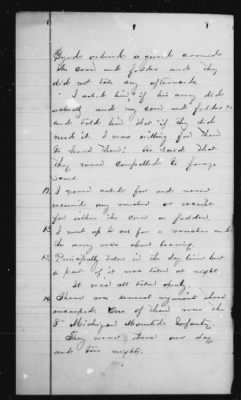 Byrd ordered a guard around
the corn and fodder and they
did not take any afterwards
I asked him if his army did
nobody and my corn and fodder &c
and told him that if they did
need it I was willing for them
to have them. He said that
they were compelled to forage
some
12 I never asked for and never
received any voucher or receipt
for either the corn or fodder.
13 I went up to ask for a voucher and
the army was about leaving
15 Principally taken in the day time but
a part of it was taken at night
It was all taken openly.
16 There was several regiments there
encamped. One of them was the
8th Michigan Mounted Infantry.
They were there one day
and two nights.